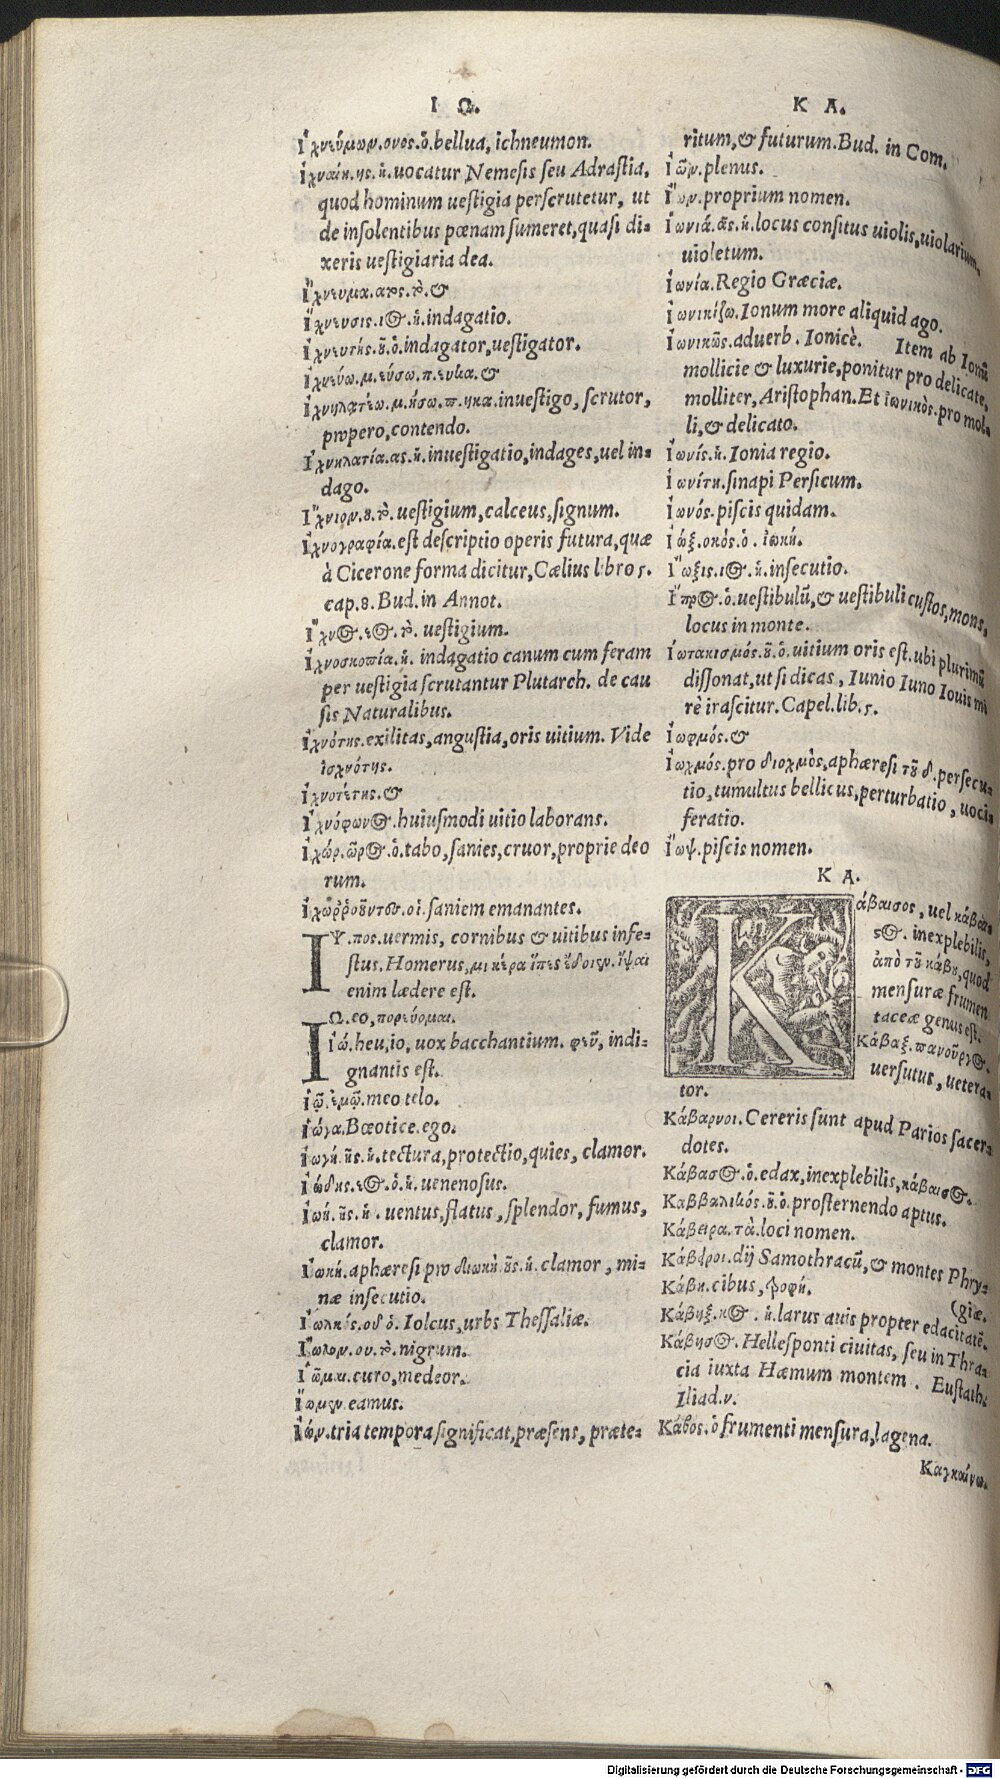 Ι Ω.
Ἰχνεύμων.ονος.ὁ.bellua, ichneumon.
Ἰχναίη.ης.ἡ.uocatur Nemesis seu Adrastia,
quod hominum uestigia perscrutetur, ut
de insolentibus pœnam sumeret,quasi di-
xeris uestigiaria dea.
Ἴχνευμα.ατος.τὸ.&
Ἴχνευσις.ιος.ἡ.indagatio.
Ἰχνευτής.οῦ.ὁ.indagator,uestigator.
Ἰχνεύω.μ.εύσω.π.ευκα.&
Ἰχνηλατέω.μ.ήσω.π.ηκα.inuestigo, scrutor,
propero,contendo.
Ἰχνηλατία.ας.ἡ.inuestigatio,indages,uel in-
dago.
Ἴχνιον.ου.τὸ.uestigium,calceus,signum.
Ἰχνογραφία.est descriptio operis futura,quæ
à Cicerone forma dicitur,Cælius libro 5.
cap.8.Bud.in Annot.
Ἴχνος.εος.τὸ. uestigium.
Ἰχνοσκοπία.ἡ. indagatio canum cum feram
per uestigia scrutantur Plutarch. de cau
sis Naturalibus.
Ἰχνότης.exilitas,angustia,oris uitium. Vide
ἰσχνότης.
Ἰχνοτέτης.&
Ἰχνόφωνος.huiusmodi uitio laborans.
Ἰχώρ.ῶρος.ὁ.tabo,sanies,cruor,proprie deo
rum.
Ἰχωῤῥοοῦντες.οἱ.saniem emanantes.
ΙΨ.πος.uermis, cornibus & uitibus infe-
stus.Homerus,μὴ κέρα ἵπες ἔδοιεν.ἶψαι
enim lædere est.
ΙΩ.εο,πορεύομαι.
Ἰώ.heu,io, uox bacchantium. φεῦ, indi-
gnantis est.
Ἰῷ.ἐμῷ.meo telo.
Ἰώγα.Bœotice.ego.
Ἰωγή.ῆς.ἡ.tectura,protectio,quies, clamor.
Ἰώδης.εος.ὁ.ἡ.uenenosus.
Ἰωή.ῆς.ἡ. uentus,flatus, splendor, fumus,
clamor.
Ἰωκή.aphæresi pro διωκὴ.ῆς.ἡ.clamor, mi-
næ insecutio.
Ἰωλκός.οῦ ὁ. Iolcus,urbs Thessaliæ.
Ἴωλον.ου.τὸ.nigrum.
Ἰῶμαι.curo,medeor.
Ἴωμεν.eamus.
Ἰών.tria tempora significat,præsens, præte-
Κ Α.
ritum,& futurum.Bud. in Com.
Ἰῶν.plenus.
Ἴων.proprium nomen.
Ἰωνιά.ᾶς.ἡ.locus consitus uiolis,uiolarium,
uioletum.
Ἰωνία.Regio Græciæ.
Ἰωνικίζω.Ionum more aliquid ago.
Ἰωνικῶς.aduerb. Ionicè. Item ab Ionũ
mollicie & luxurie,ponitur pro delicate,
molliter, Aristophan.Et ἰωνικὸς.pro mol-
li,& delicato.
Ἰωνίς.ἡ. Ionia regio.
Ἰωνίτη.sinapi Persicum.
Ἰωνός.piscis quidam.
Ἰώξ.οκός.ὁ.ἰωκή.
Ἴωξις.ιος.ἡ.insecutio.
Ἴπρος.ὁ.uestibulũ,& uestibuli custos,mons,
locus in monte.
Ἰωτακισμός.οῦ.ὁ.uitium oris est.ubi plurimũ
dissonat,ut si dicas, Iunio Iuno Iouis mi
rè irascitur.Capel.lib.5.
Ἰωφμός.&
Ἰωχμός.pro διοχμὸς,aphæresi τοῦ δ.persecu-
tio,tumultus bellicus,perturbatio, uoci-
feratio.
Ἴωψ.piscis nomen.
Κ Α.
Κάβαισος, uel κάβαι-
σος. inexplebilis,
ἀπὸ τοῦ κάβου,quod
mensuræ frumen
taceæ genus est.
Κάβαξ.πανοῦργος.
uersutus, uetera-
tor.
Κάβαρνοι.Cereris sunt apud Parios sacer-
dotes.
Κάβασος.ὁ.edax,inexplebilis,κάβαισος.
Καββαλικός.οῦ.ὁ.prosternendo aptus.
Κάβειρα.τὰ.loci nomen.
Κάβειροι.dij Samothracũ,& montes Phry-
(giæ.
Κάβη.cibus, τροφή.
Κάβηξ.κος. ἡ.larus auis propter edacitatẽ.
Κάβησος.Hellesponti ciuitas, seu in Thra-
cia iuxta Hæmum montem. Eustath.
Iliad.ν.
Κάβος.ὁ frumenti mensura,lagena.
Καγκαίνω.
Digitalisierung gefördert durch die Deutsche Forschungsgemeinschaft - DFG